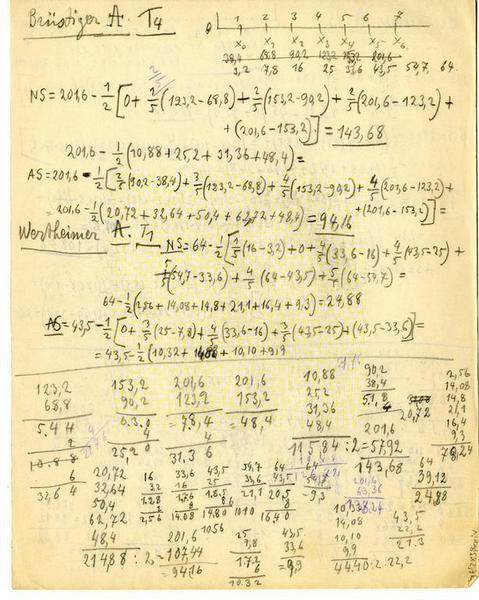 Brüstiger A. T4
0 1 2 3 4 5 6 7
x₀ x₁ x₂ x₃ x₄ x₅ x₆
38,4 68,8 90,2 123,2 153,2 201,6
3,2 7,8 16 25 33,6 43,5 54,7 64
NS = 201,6 - 1/2 [0 + 1/5 (123,2 - 68,8) + 2/5 (153,2 - 90,2) + 2/5 (201,6 - 123,2) +
+ (201,6 - 153,2)] = 143,68
201,6 - 1/2 (10,88 + 25,2 + 31,36 + 48,4) =
AS = 201,6 - 1/2 [2/5 (90,2 - 38,4) + 3/5 (123,2 - 68,8) + 4/5 (153,2 - 90,2) + 4/5 (201,6 - 123,2) +
= 201,6 - 1/2 (20,72 + 32,64 + 50,4 + 62,72 + 48,4) = 94,16 + (201,6 - 153,2)] =
Wertheimer A. T1 NS = 64 - 1/2 [1/5 (16 - 3,2) + 0 + 4/5 (33,6 - 16) + 4/5 (43,5 - 25) +
5/5 (54,7 - 33,6) + 4/5 (64 - 43,5) + 5/5 (64 - 54,7) =
64 - 1/2 (2,56 + 14,08 + 14,8 + 21,1 + 16,4 + 9,3) = 24,88
AS = 43,5 - 1/2 [0 + 3/5 (25 - 7,8) + 4/5 (33,6 - 16) + 3/5 (43,5 - 25) + (43,5 - 33,6)] =
= 43,5 - 1/2 (10,32 + 10,10 + 9,9
123,2 153,2 201,6 201,6 10,88 90,2 2,56
68,8 90,2 123,2 153,2 25,2 38,4 14,08
5 4 4 6 3.0 = 78,4 = 48,4 31,36 51,8 14,8
2 4 4 48,4 20,72 21,1
10.88 25,20 31,36 201,6 16,4
115,84 : 2 = 57,92 9,3
143,68 78,24
6 20,72 16 33,6 43,5 54,7 64 64
32,64 32,64 3,2 16 25 33,6 43,5 39,12
50,4 12,8 17,6 18,5 21,1 20,5 -9,3 24,88
62,72 2,56 14.08 14,80 16,40
48,4 201,6 25 43,5 14,08 43,5
214,88 : 2 = 107,44 7,8 33,6 10,10 22,2
= 94,16 17,2 = 9,9 9,9 21.3
6 44.40 : 2 = 22,2
10.32